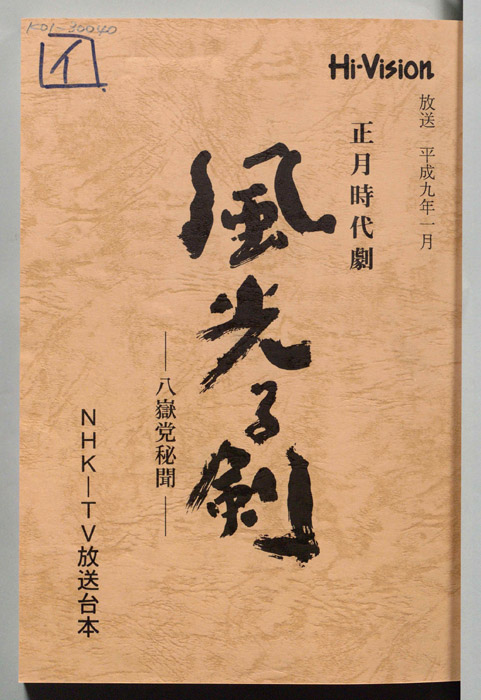 K01-30040
イ
Hi-Vision
放送 平成九年一月
正月時代劇
風光る剣
―八嶽党秘聞―
NHK―TV放送台本